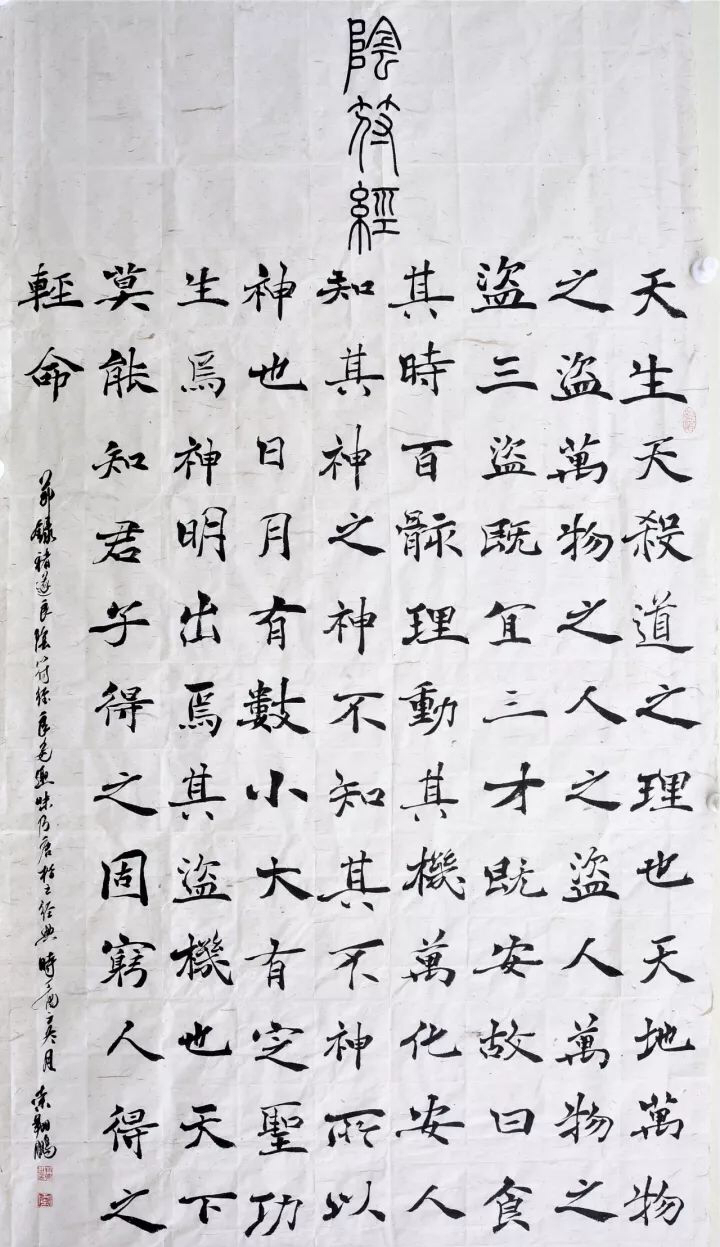 陰符經
天生天殺道之理也天地萬物
之盜萬物之人之盜人萬物之
盜三盜既宜三才既安故曰食
其時百骸理動其機萬化安人
知其神之神不知其不神所以
神也日月有數小大有定聖功
生焉神明出焉其盜機也天下
莫能知君子得之固窮人得之
輕命
節錄褚遂良陰符經 乃唐楷之經典時 月